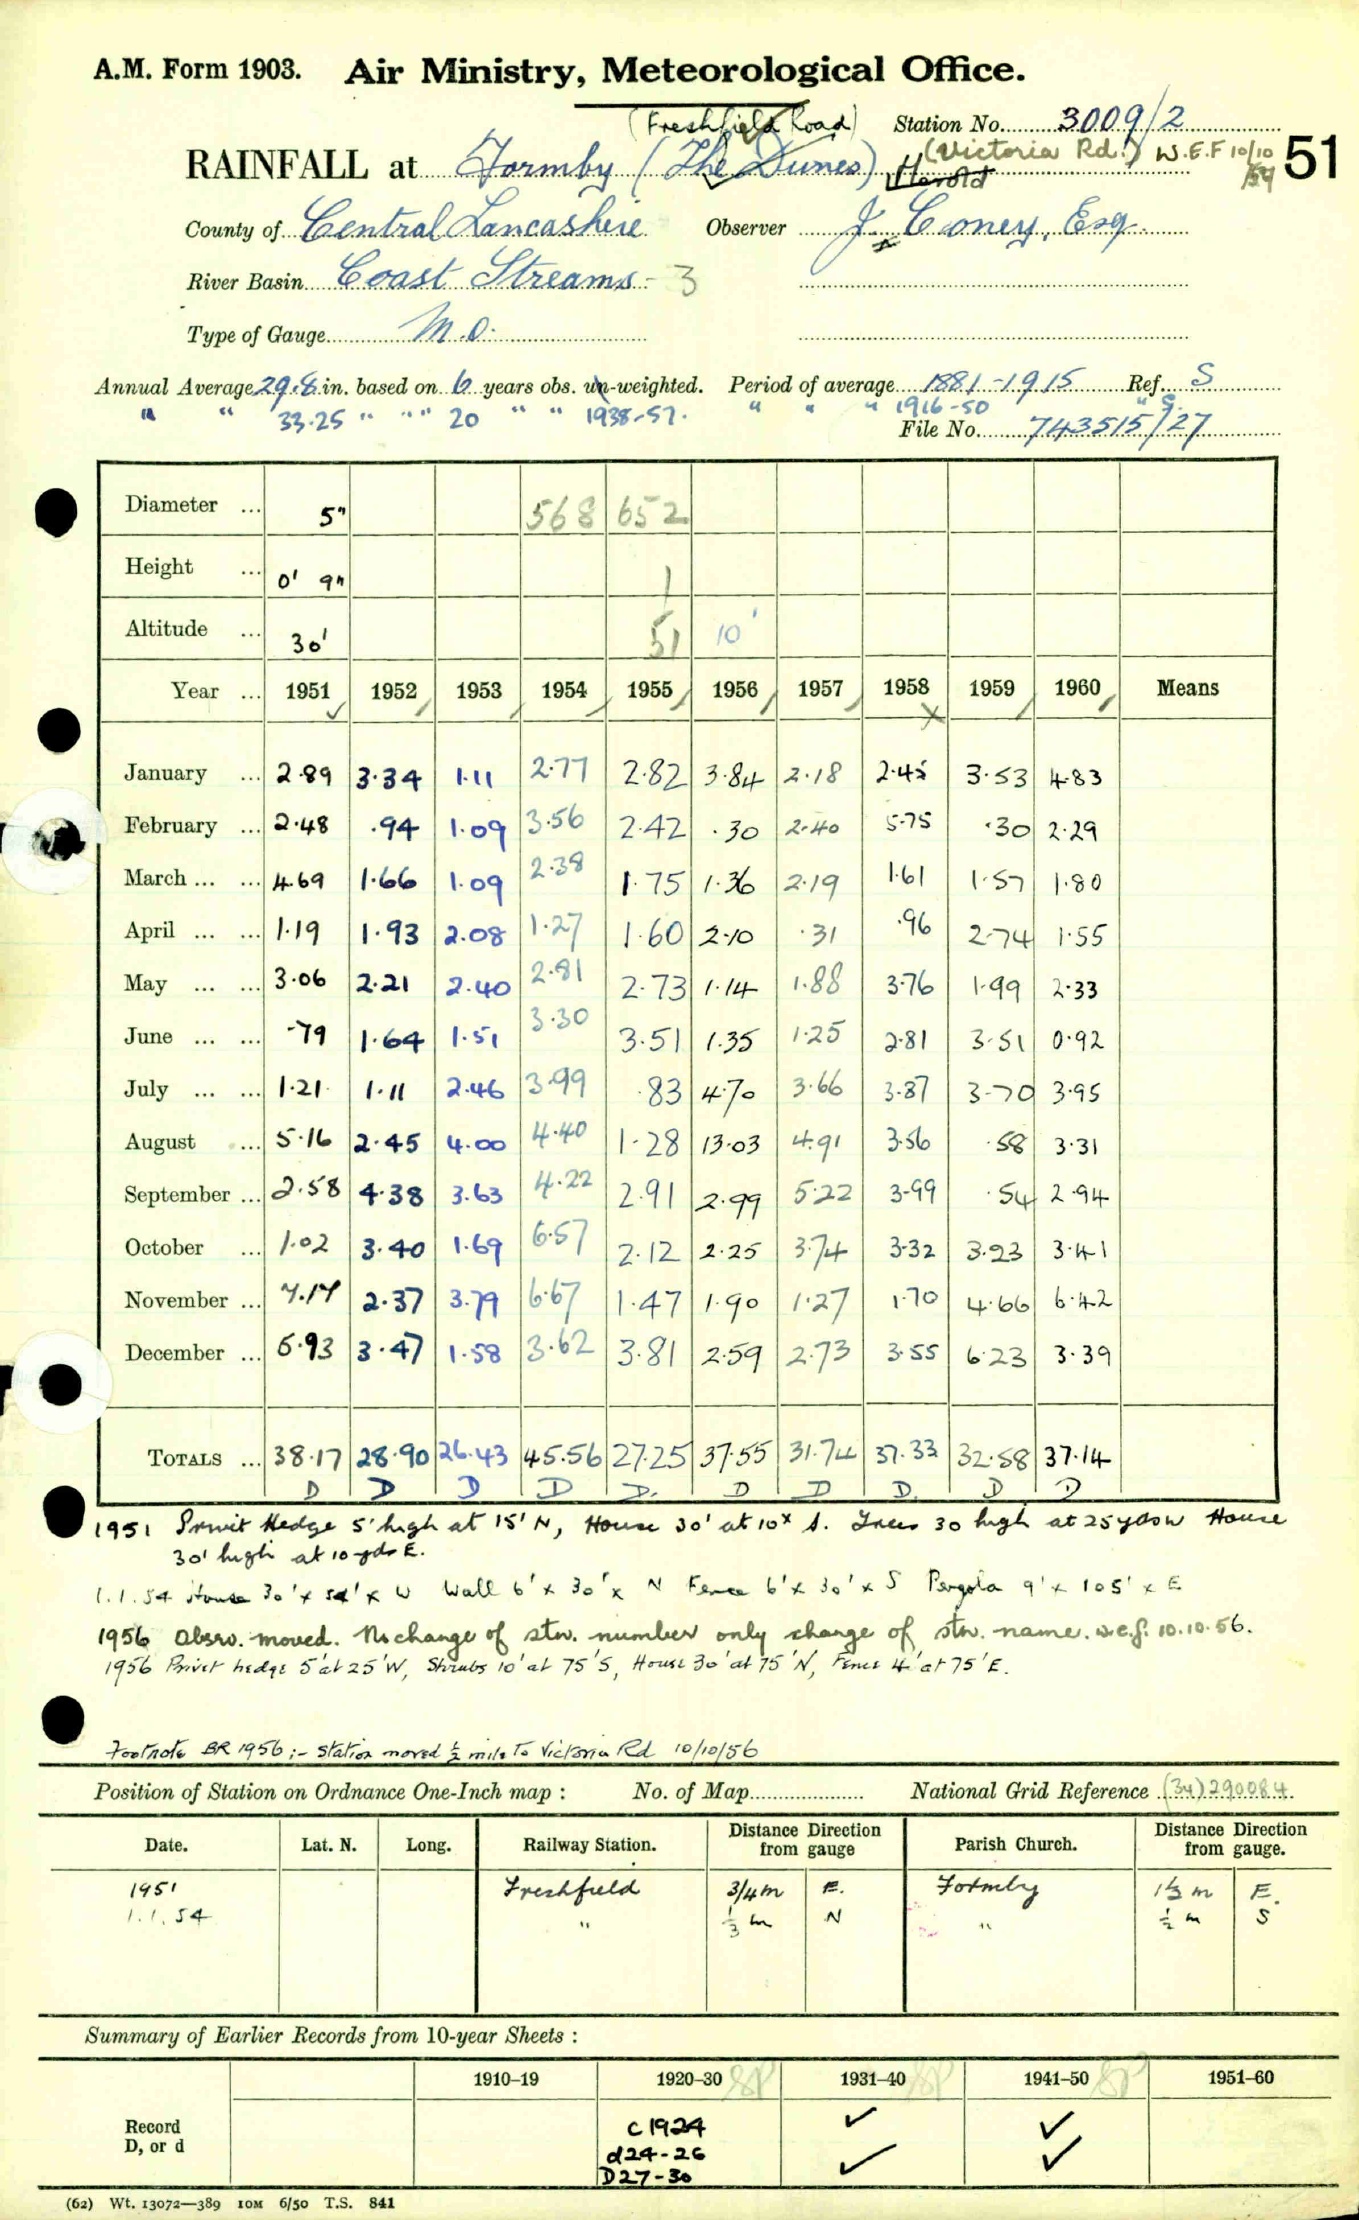 A.M. Form 1903. Air Ministry, Meteorological Office.
(Freshfield Road) Station No. 3009/2
RAINFALL at Formby (The Dunes) (Victoria Rd.) W.E.F 10/10 51
Harold
County of Central Lancashire Observer J. Coney, Esq.
River Basin Coast Streams - 3
Type of Gauge M.O.
Annual Average 29.8 in. based on 6 years obs. un-weighted. Period of average 1881-1915 Ref. S
" " 33.25 " " " 20 " " 1938-57. " " " 1916-50 " S.
File No. 743515/27
Diameter ... 5" 568 652
Height ... 0' 9" 1
Altitude ... 30' 51 10'
Year ... 1951 1952 1953 1954 1955 1956 1957 1958 1959 1960 Means
January ... 2.89 3.34 1.11 2.77 2.82 3.84 2.18 2.45 3.53 4.83
February ... 2.48 .94 1.09 3.56 2.42 .30 2.40 5.75 .30 2.29
March ... ... 4.69 1.66 1.09 2.38 1.75 1.36 2.19 1.61 1.57 1.80
April ... ... 1.19 1.93 2.08 1.27 1.60 2.10 .31 .96 2.74 1.55
May ... ... 3.06 2.21 2.40 2.81 2.73 1.14 1.88 3.76 1.99 2.33
June ... ... .79 1.64 1.51 3.30 3.51 1.35 1.25 2.81 3.51 0.92
July ... ... 1.21 1.11 2.46 3.99 .83 4.70 3.66 3.87 3.70 3.95
August ... 5.16 2.45 4.00 4.40 1.28 13.03 4.91 3.56 .58 3.31
September ... 2.58 4.38 3.63 4.22 2.91 2.99 5.22 3.99 .54 2.94
October ... 1.02 3.40 1.69 6.57 2.12 2.25 3.74 3.32 3.23 3.41
November ... 7.17 2.37 3.79 6.67 1.47 1.90 1.27 1.70 4.66 6.42
December ... 5.93 3.47 1.58 3.62 3.81 2.59 2.73 3.55 6.23 3.39
TOTALS ... 38.17 28.90 26.43 45.56 27.25 37.55 31.74 37.33 32.58 37.14
D D D D D. D D D. D D
1951 Privit Hedge 5' high at 15' N, House 30' at 10x S. Trees 30 high at 25 yds W House
30' high at 10 yds E.
1.1.54 House 30' x 54' x W Wall 6' x 30' x N Fence 6' x 30' x S Pergola 9' x 105' x E
1956 Obsr. moved. No change of stn. number only change of stn. name. w.e.f. 10.10.56.
1956 Privet hedge 5' at 25' W, Shrubs 10' at 75' S, House 30' at 75' N, Fence 4' at 75' E.
Footnote BR 1956 :- Station moved ½ mile to Victoria Rd 10/10/56
Position of Station on Ordnance One-Inch map : No. of Map National Grid Reference (34) 290084
Date. Lat. N. Long. Railway Station. Distance Direction from gauge Parish Church. Distance Direction from gauge.
1951 Freshfield 3/4 m E. Formby 1½ m E.
1.1.54 " ⅓ m N " ½ m S
Summary of Earlier Records from 10-year Sheets :
1910–19 1920–30 SP 1931–40 SP 1941–50 SP 1951–60
Record c 1924 ✓ ✓
D, or d d24-26 ✓ ✓
D27-30
(62) Wt. 13072—389 10M 6/50 T.S. 841